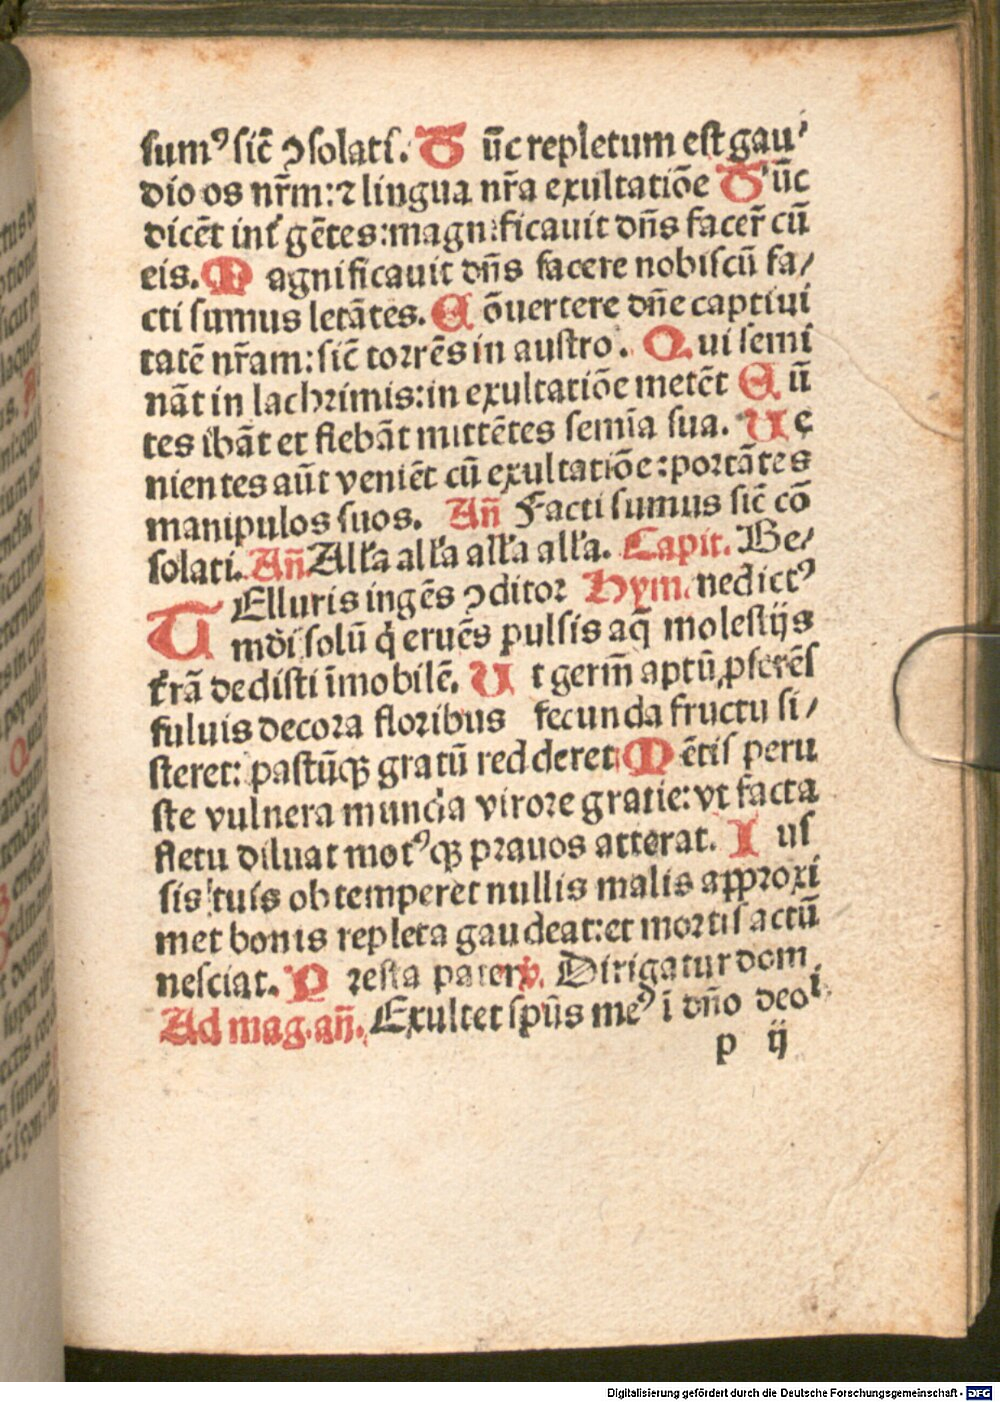 sumꝰ sic̄ ꝯsolati. T ūc repletum est gau/
dio os nr̄m: ⁊ lingua nr̄a exultatiōe T ūc
dicēt int̄ gētes: magnificauit dn̄s facer̄ cū
eis. M agnificauit dn̄s facere nobiscū fa/
cti sumus letātes. C ōuertere dn̄e captiui
tatē nr̄am: sic̄ torrēs in austro. Q ui semi
nāt in lachrimis: in exultatiōe metēt E ū
tes ibāt et flebāt mittētes semīa sua. U e
nientes aūt veniēt cū exultatiōe: portātes
manipulos suos. Añ Facti sumus sic̄ cō
solati. Añ Alľa alľa alľa alľa. Capit. Be/
TElluris ingēs ꝯditor Hym. nedictꝰ
mōi solū q̇ eruēs pulsis aq̄ molestijs
t̄rā dedisti īmobilē. U t germ̄ aptū ꝓferēs
fuluis decora floribus fecunda fructu si/
steret: pastūqꝫ gratū redderet M ētis peru
ste vulnera munda virore gratie: vt facta
fletu diluat motꝰqꝫ prauos atterat. I us
sis tuis obtemperet nullis malis approxi
met bonis repleta gaudeat: et mortis actū
nesciat. P resta pater ℣. Dirigatur dom.
Ad mag. añ. Exultet sp̄us meꝰ ī dn̄o deo
p ij
Digitalisierung gefördert durch die Deutsche Forschungsgemeinschaft - DFG